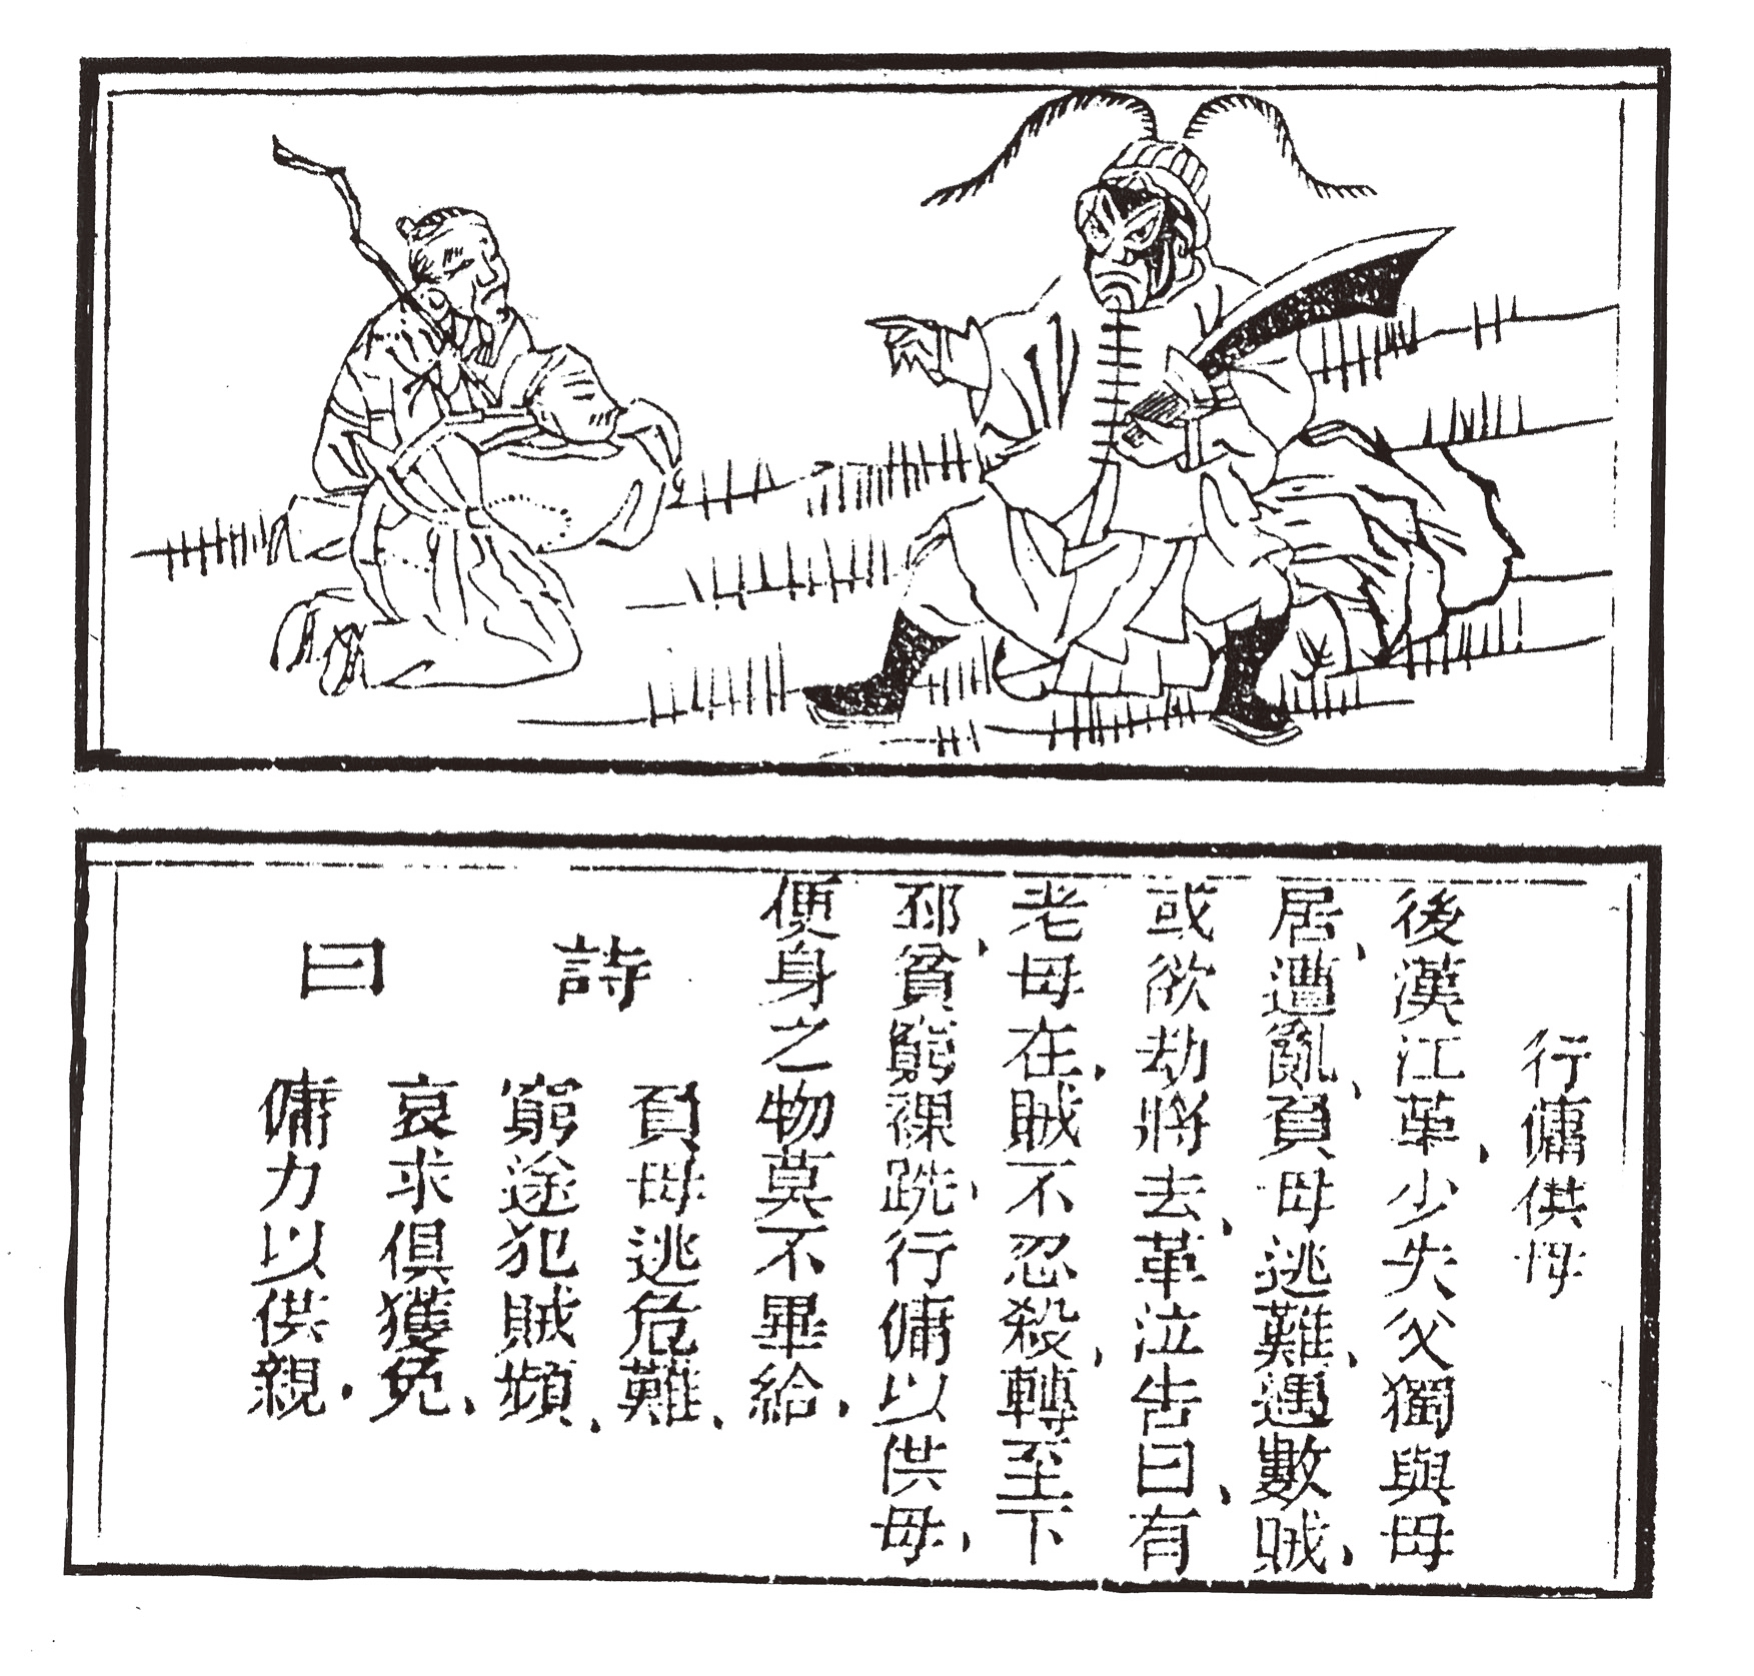 行傭供母
後漢江革、少失父獨與母
居、遭亂、負母逃難、遇數賊、
或欲劫將去、革泣告曰、有
老母在、賊不忍殺、轉至下
邳、貧窮裸跣、行傭以供母、
便身之物莫不畢給、
詩曰
負母逃危難、
窮途犯賊頻、
哀求俱獲免、
傭力以供親、